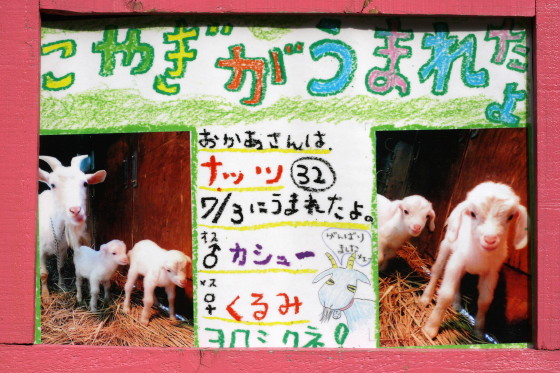 こやぎがうまれたよ
おかあさんは、
ナッツ 32
7/3にうまれたよ。
オス ♂ カシュー
がんばり
ました
メス ♀ くるみ
ヨロシクネ!